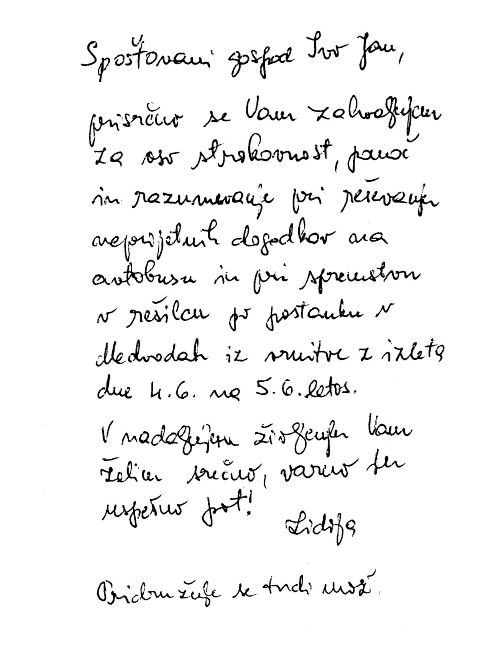 Spoštovani gospod Ivo Jan,
prisrčno se Vam zahvaljujem
za vso strokovnost, pomoč
in razumevanje pri reševanju
neprijetnih dogodkov na
avtobusu in pri spremstvu
v rešilcu po postanku v
Medvodah iz vrnitve z izleta
dne 4.6. na 5.6. letos.
V nadaljnjem življenju Vam
želim srečno, varno ter
uspešno pot!
Lidija
Pridružuje se tudi mož.